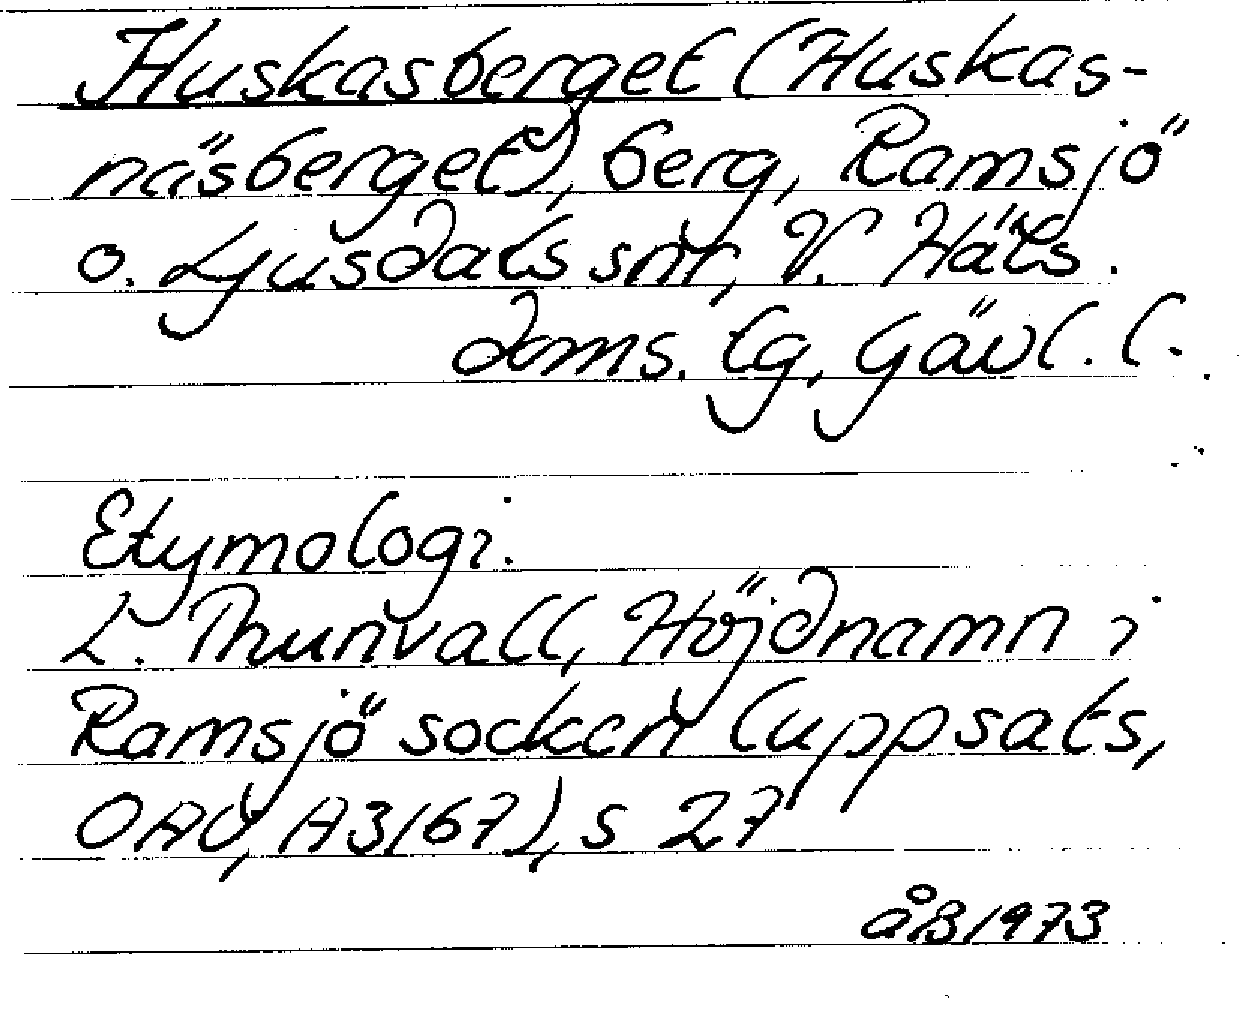 Huskasberget (Huskas-
näsberget), berg, Ramsjö
o. Ljusdals snr, V. Häls.
doms. lg, Gävl. l.
Etymologi.
L. Thunvall, Höjdnamn i
Ramsjö socken (uppsats,
OAU, A3167), s 27
åB 1973